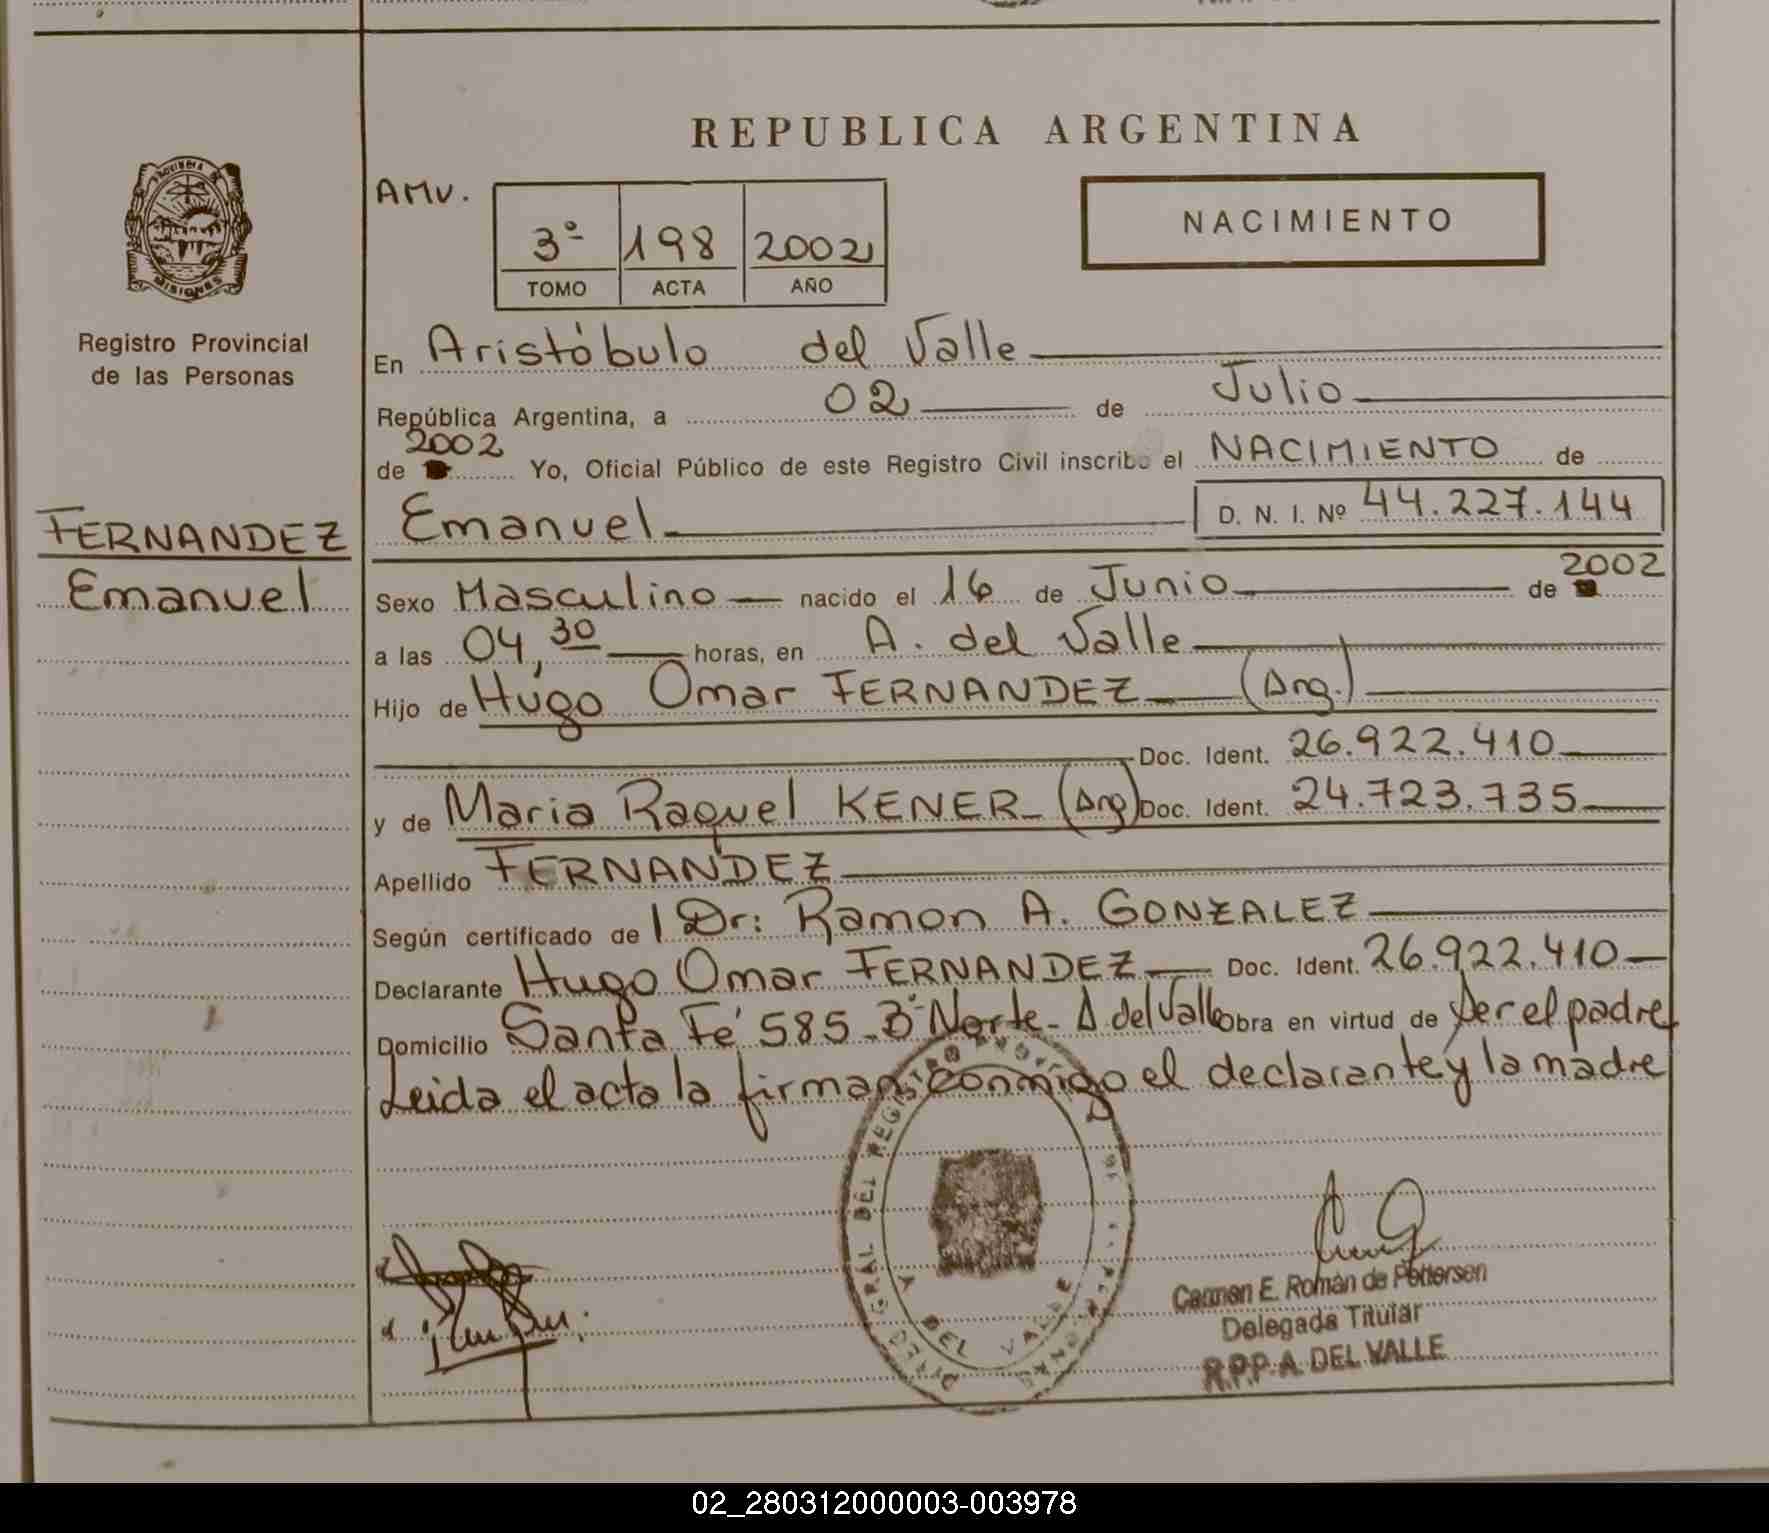 REPUBLICA ARGENTINA
PROVINCIA DE
MISIONES
Registro Provincial
de las Personas
AMV.
3º 198 2002
TOMO ACTA AÑO
NACIMIENTO
En Aristóbulo del Valle
República Argentina, a 02 de Julio
de 2002 Yo, Oficial Público de este Registro Civil inscribo el NACIMIENTO de
Emanuel D. N. I. Nº 44.227.144
FERNANDEZ
Emanuel
Sexo Masculino nacido el 16 de Junio de 2002
a las 04,30 horas, en A. del Valle
Hijo de Hugo Omar FERNANDEZ (Arg.)
Doc. Ident. 26.922.410
y de Maria Raquel KENER (Arg) Doc. Ident. 24.723.735
Apellido FERNANDEZ
Según certificado de l Dr: Ramon A. GONZALEZ
Declarante Hugo Omar FERNANDEZ Doc. Ident. 26.922.410
Domicilio Santa Fé 585 - Bº Norte - A. del Valle Obra en virtud de ser el padre
Leida el acta la firman conmigo el declarante y la madre
GRAL DEL REGISTRO
A DEL VALLE
Carmen E. Román de Pettersen
Delegada Titular
R.P.P. A. DEL VALLE
02_280312000003-003978